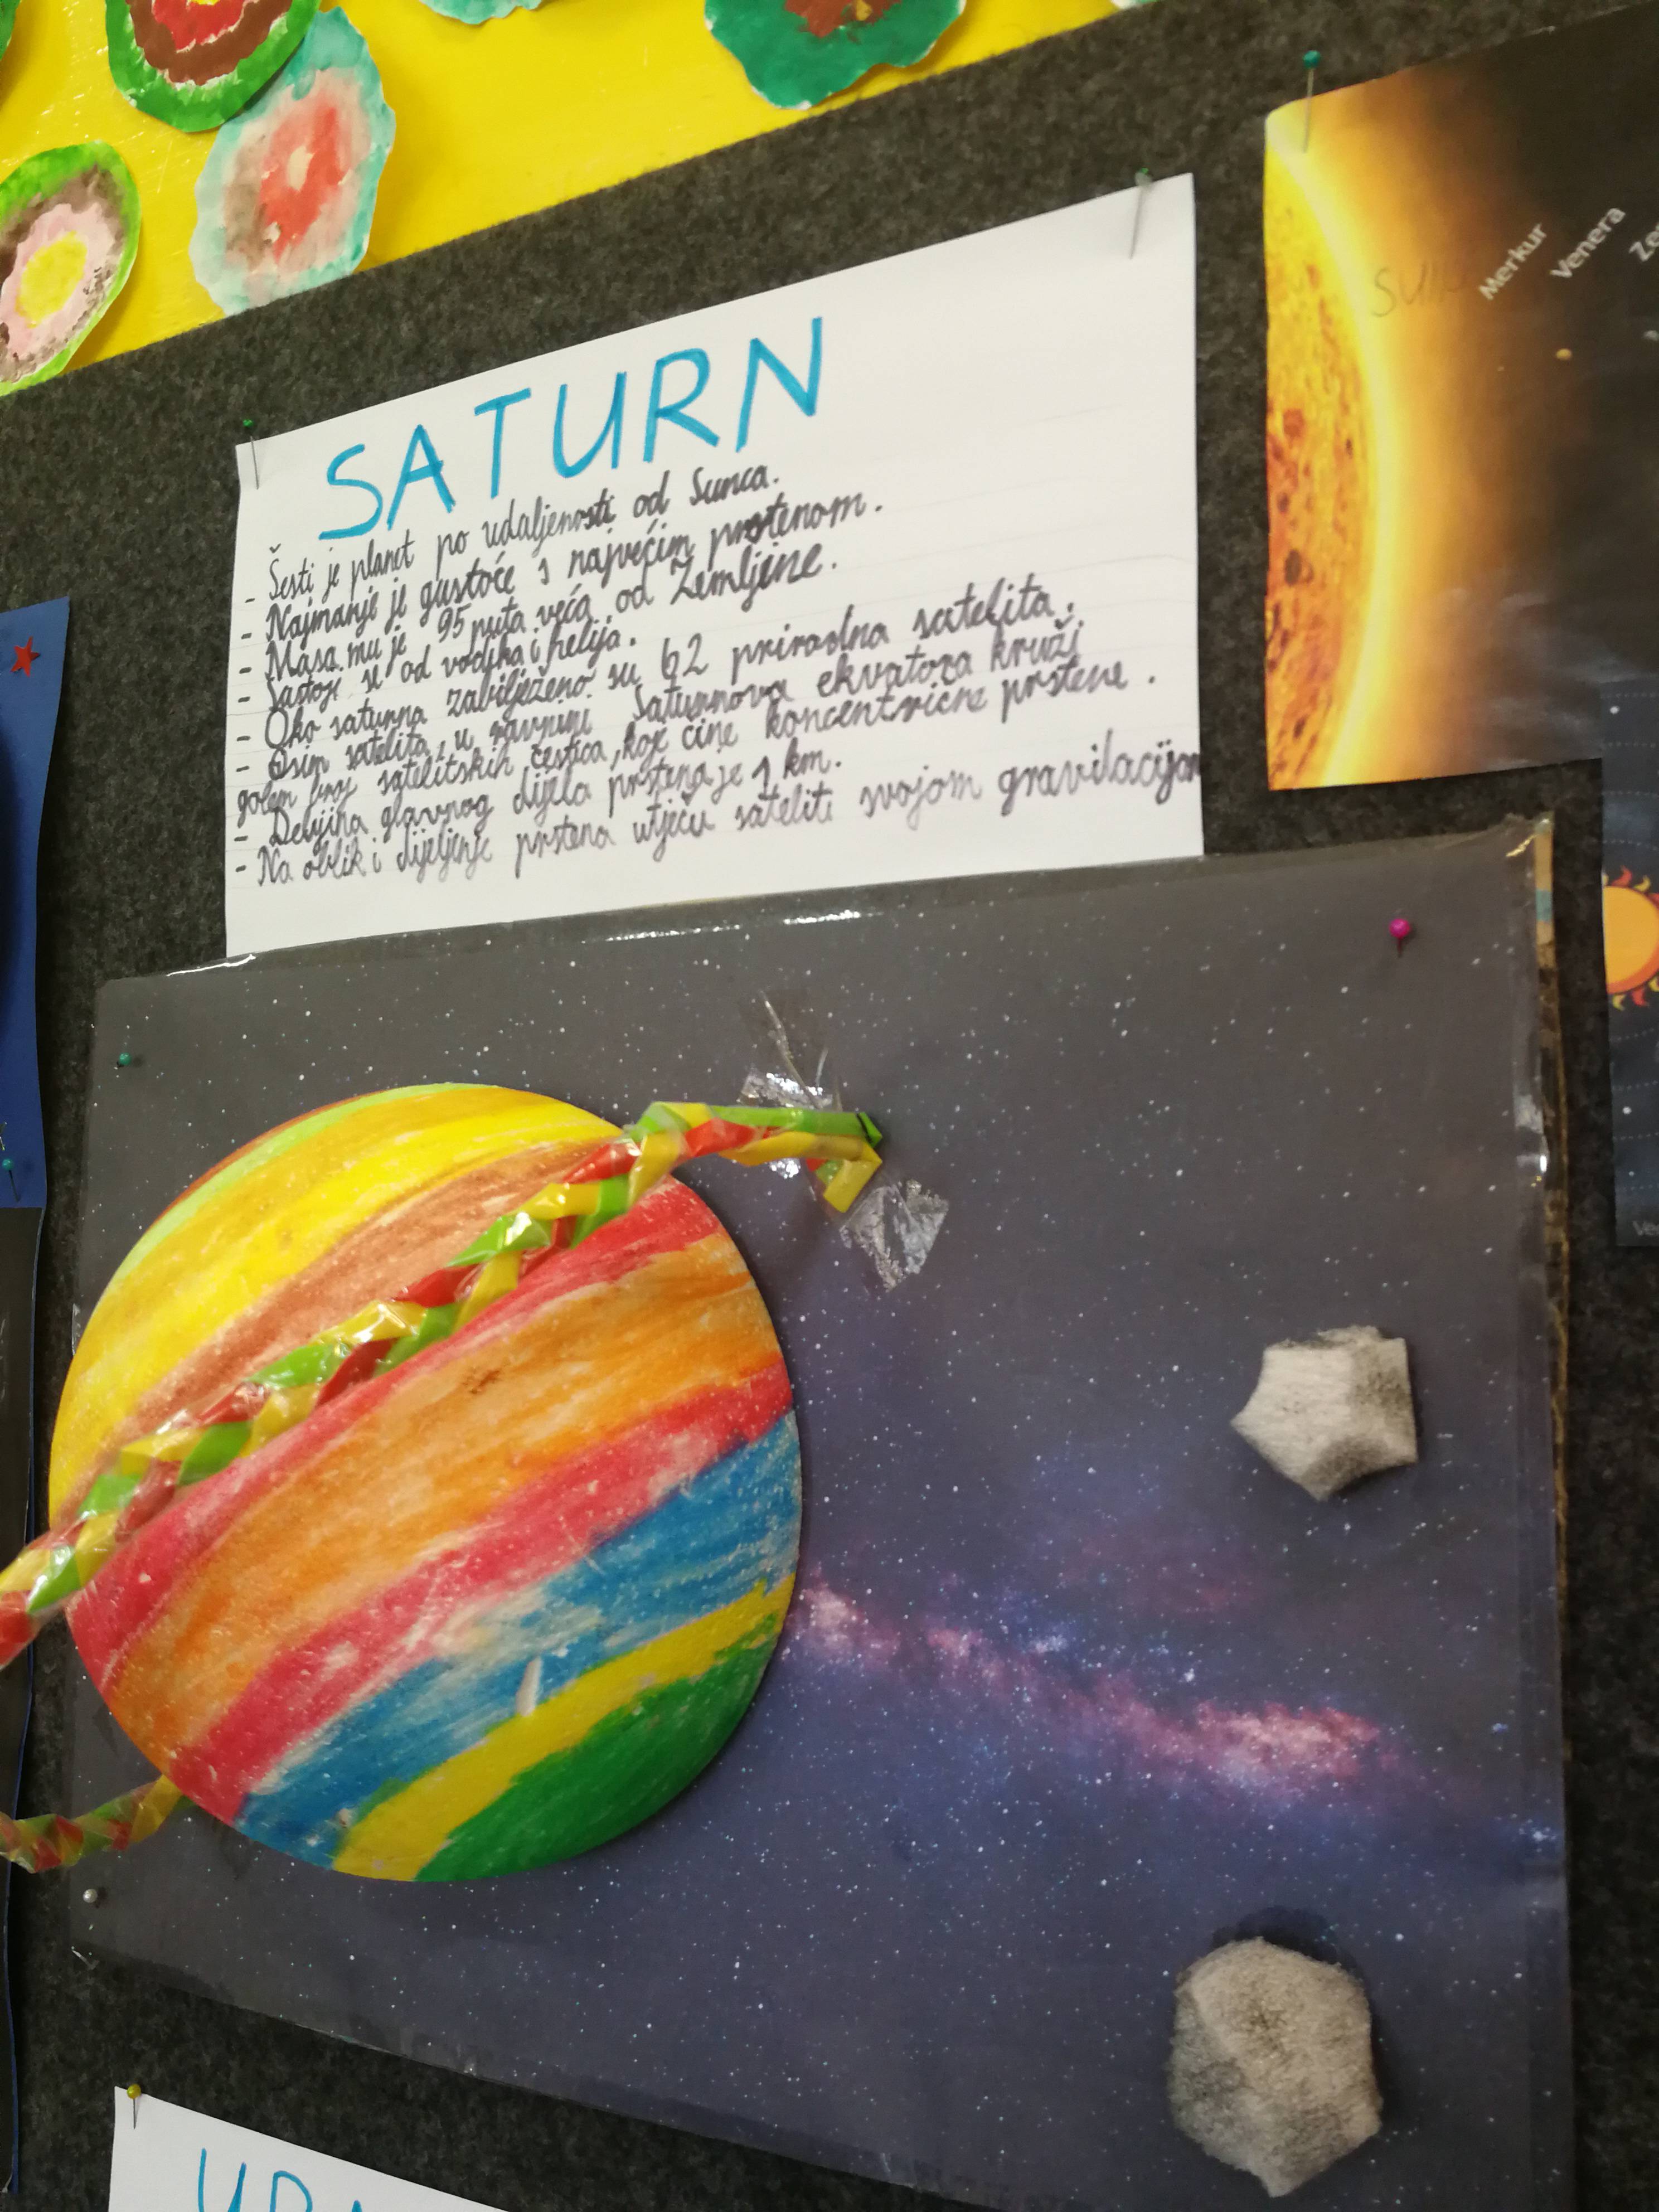 SATURN
- Šesti je planet po udaljenosti od Sunca.
- Najmanje je gustoće s najvećim prstenom.
- Masa mu je 95 puta veća od Zemljine.
- Sastoji se od vodika i helija.
- Oko saturna zabilježeno su 62 prirodna satelita.
- Osim satelita, u ravnini Saturnova ekvatora kruži
golem broj satelitskih čestica, koje čine koncentricne prstene.
- Debljina glavnog dijela prstena je 1 km.
- Na oblik i dijeljenje prstena utječu sateliti svojom gravitacijom
Merkur
Venera